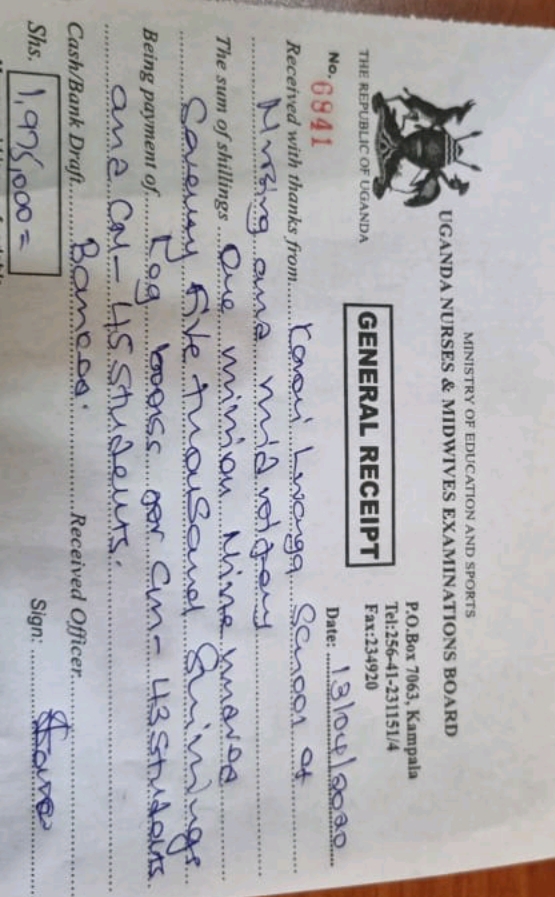 MINISTRY OF EDUCATION AND SPORTS
UGANDA NURSES & MIDWIVES EXAMINATIONS BOARD
THE REPUBLIC OF UGANDA
GENERAL RECEIPT
P.O.Box 7063, Kampala
Tel:256-41-231151/4
Fax:234920
No. 6841
Date: 13/04/2020
Received with thanks from Karoli Lwanga School of
Nursing and midwifery
The sum of shillings One million Nine hundred
Seventy five thousand Shillings
Being payment of Log books for CN- 43 Students
and CM- 45 Students.
Cash/Bank Draft Banked. Received Officer
Shs. 1,975,000=
Sign: